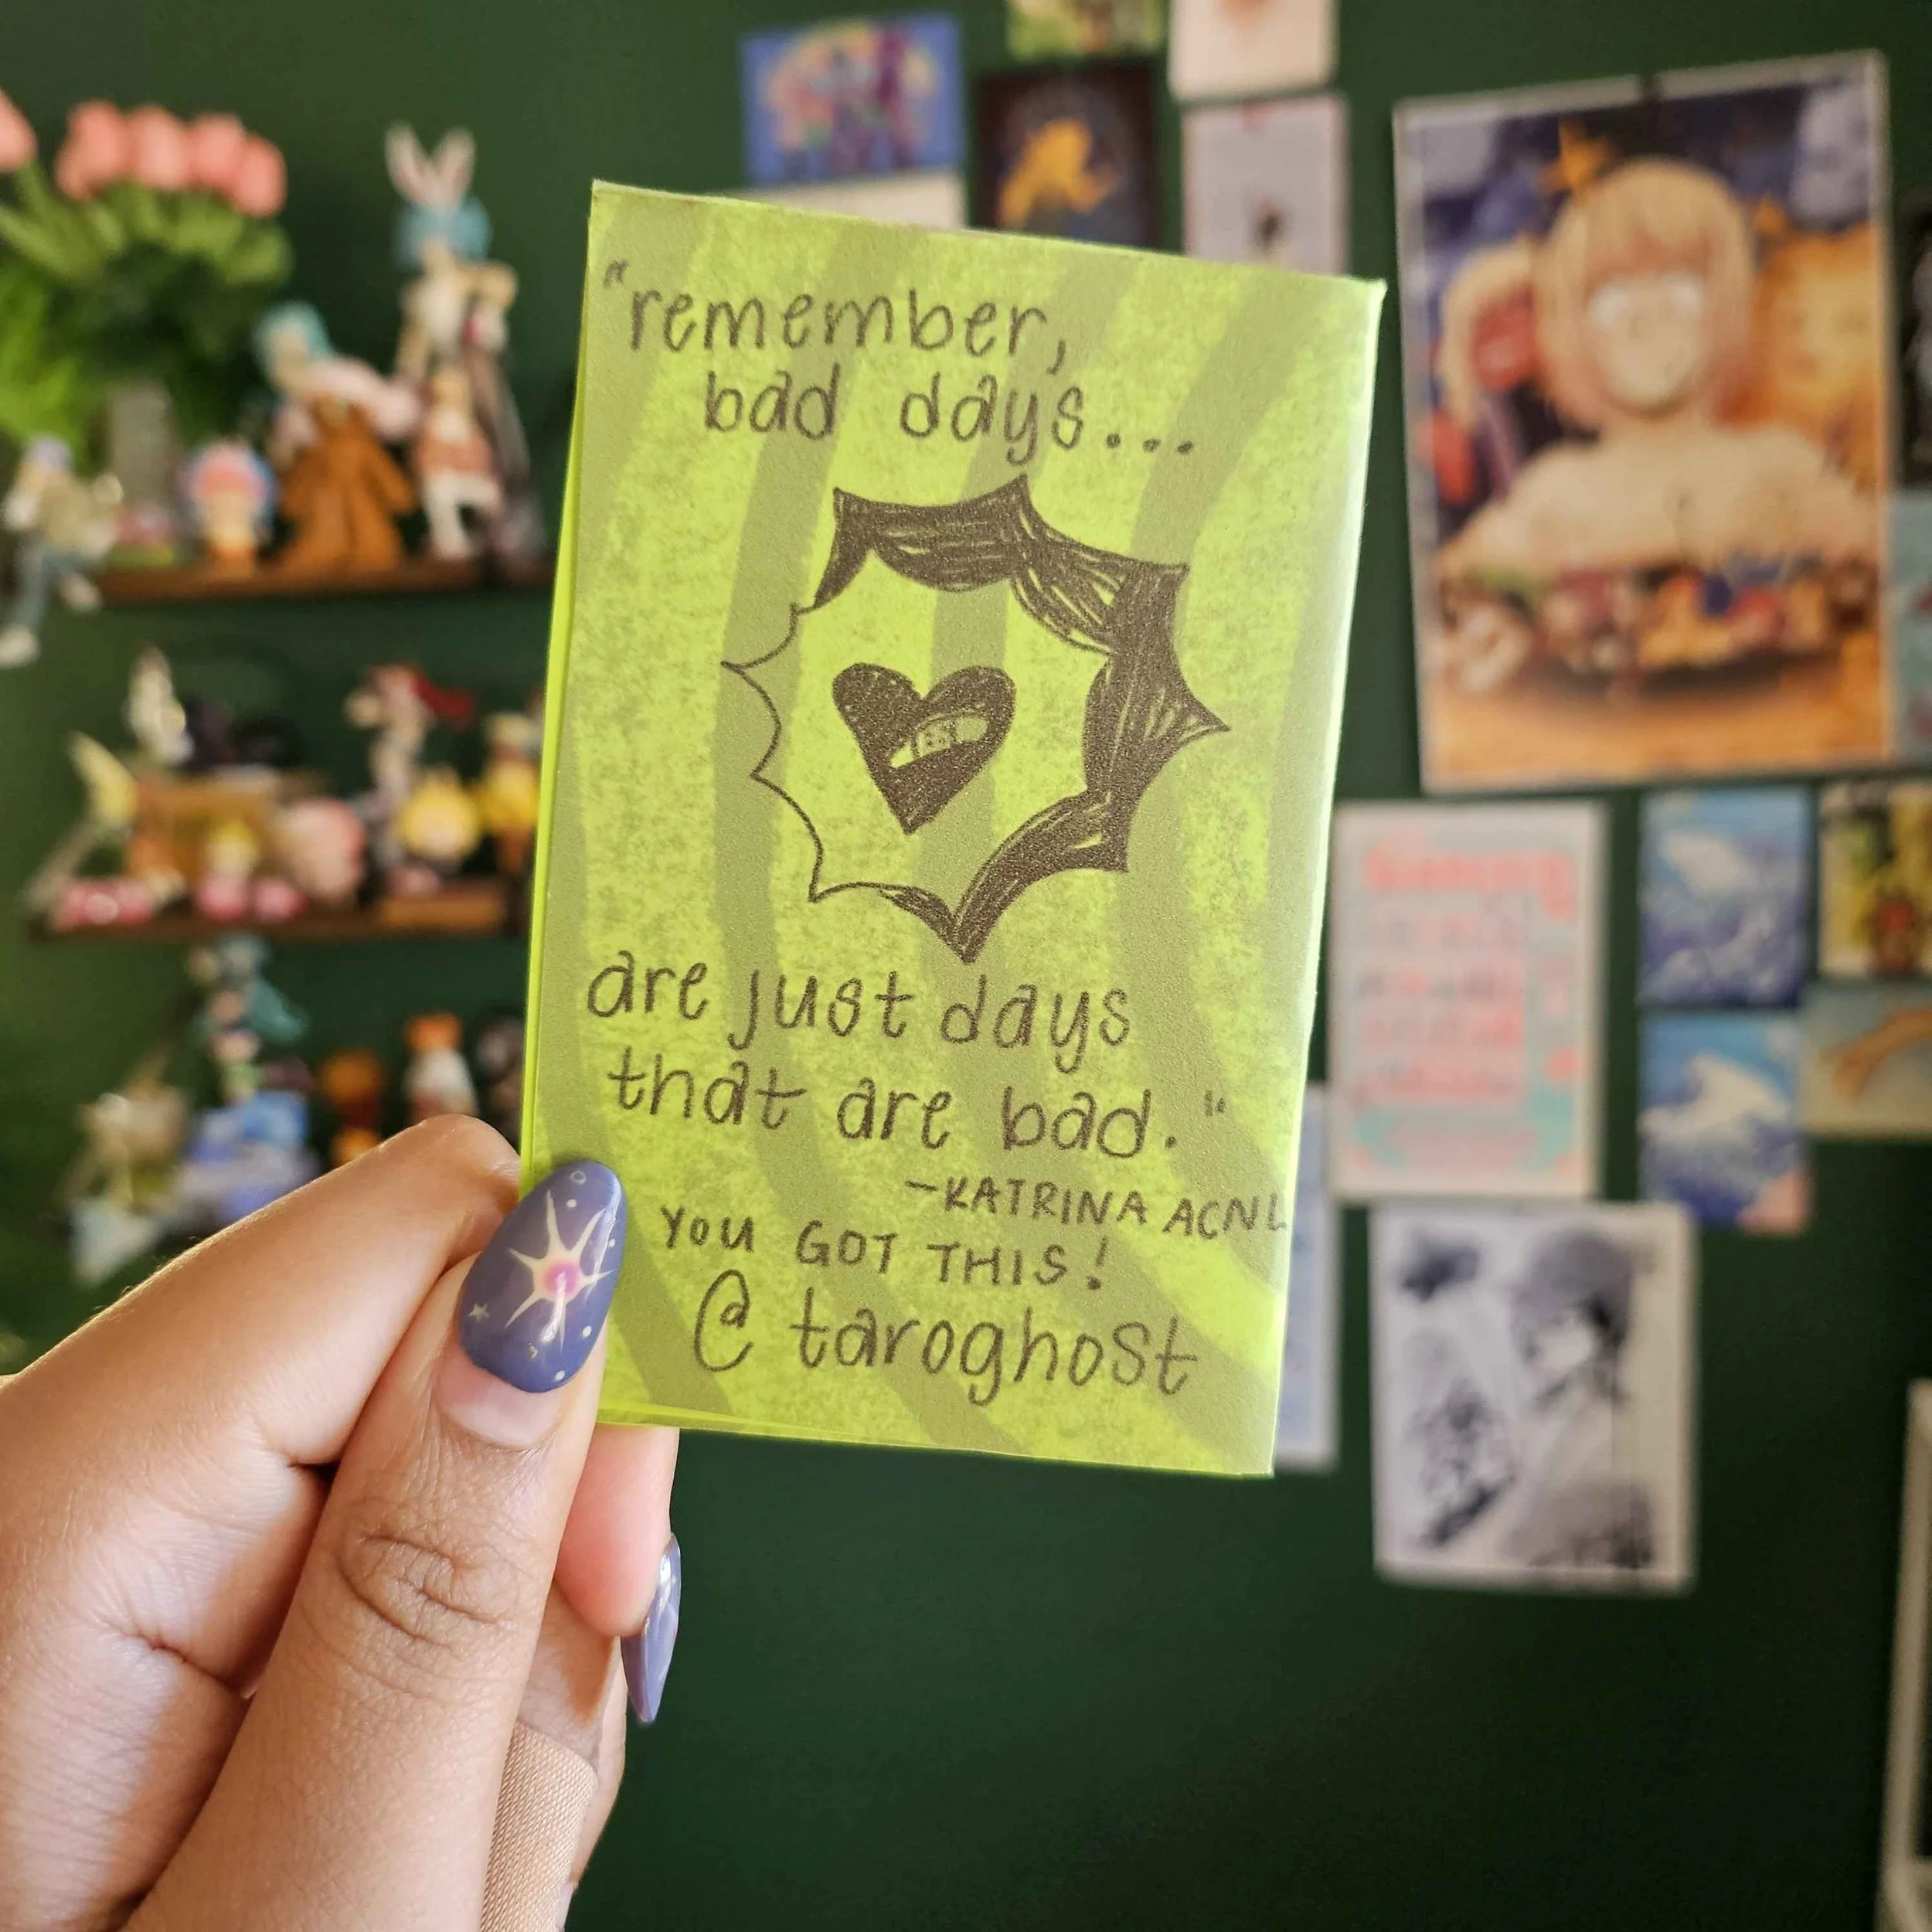 "remember,
bad days...
are just days
that are bad."
-KATRINA ACNL
YOU GOT THIS!
@taroghost